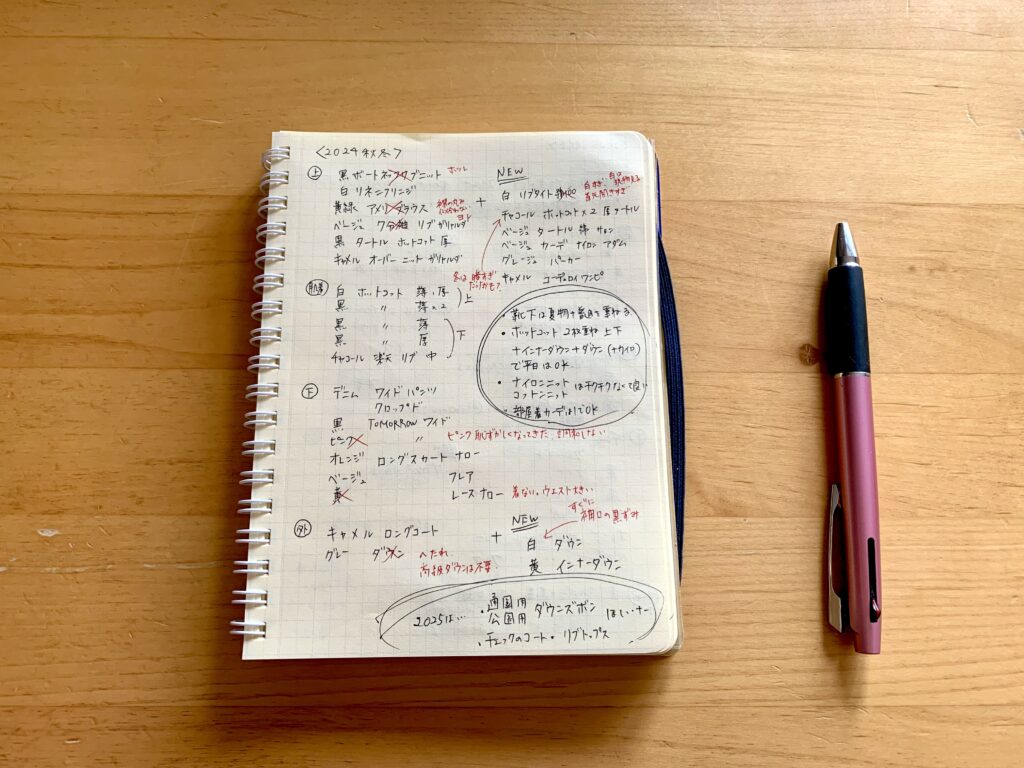 <2024秋冬>
上
黒 ボートネック リブニット
白 リネンフリンジ
黄緑 アメリ ブラウス
ベージュ 7分袖 リブ ガリャルダ
黒 タートル ホットコット 厚
キャメル オーバー ニット ガリャルダ
+
NEW
白 リブタイト
チャコール ホットコット×2 厚 タートル
ベージュ タートル 綿
ベージュ カーデ ナイロン アダム
グレージュ パーカー
キャメル コーデュロイワンピ
肌着
白 ホットコット 薄、厚
黒 〃 薄×2
上
黒 〃 薄
黒 〃 厚
チャコール 楽天 リブ 中
下
・靴下は夏物+毛を重ねる
・ホットコット 2枚重ね 上下
+インナーダウン+ダウン(+カイロ)
で平日はOK
・ナイロンニット
コットンニット
はチクチクなくて良い
・部屋着カーデは1でOK
下
デニム ワイド パンツ
クロップド
黒 TOMORROW ワイド
ピンク 〃 ピンク恥ずかしくなってきた 調和しない
オレンジ ロングスカート ナロー
ベージュ フレア
黄 レースナロー 着ない、ウエスト大きい
外
キャメル ロングコート
グレー ダウン へたれ
高級ダウンは不要
+
NEW
すぐに
袖口の黒ずみ
白 ダウン
黄 インナーダウン
2025は…
・通園用
公園用
ダウンズボン ほしいナー
・チェックのコート・リブトップス